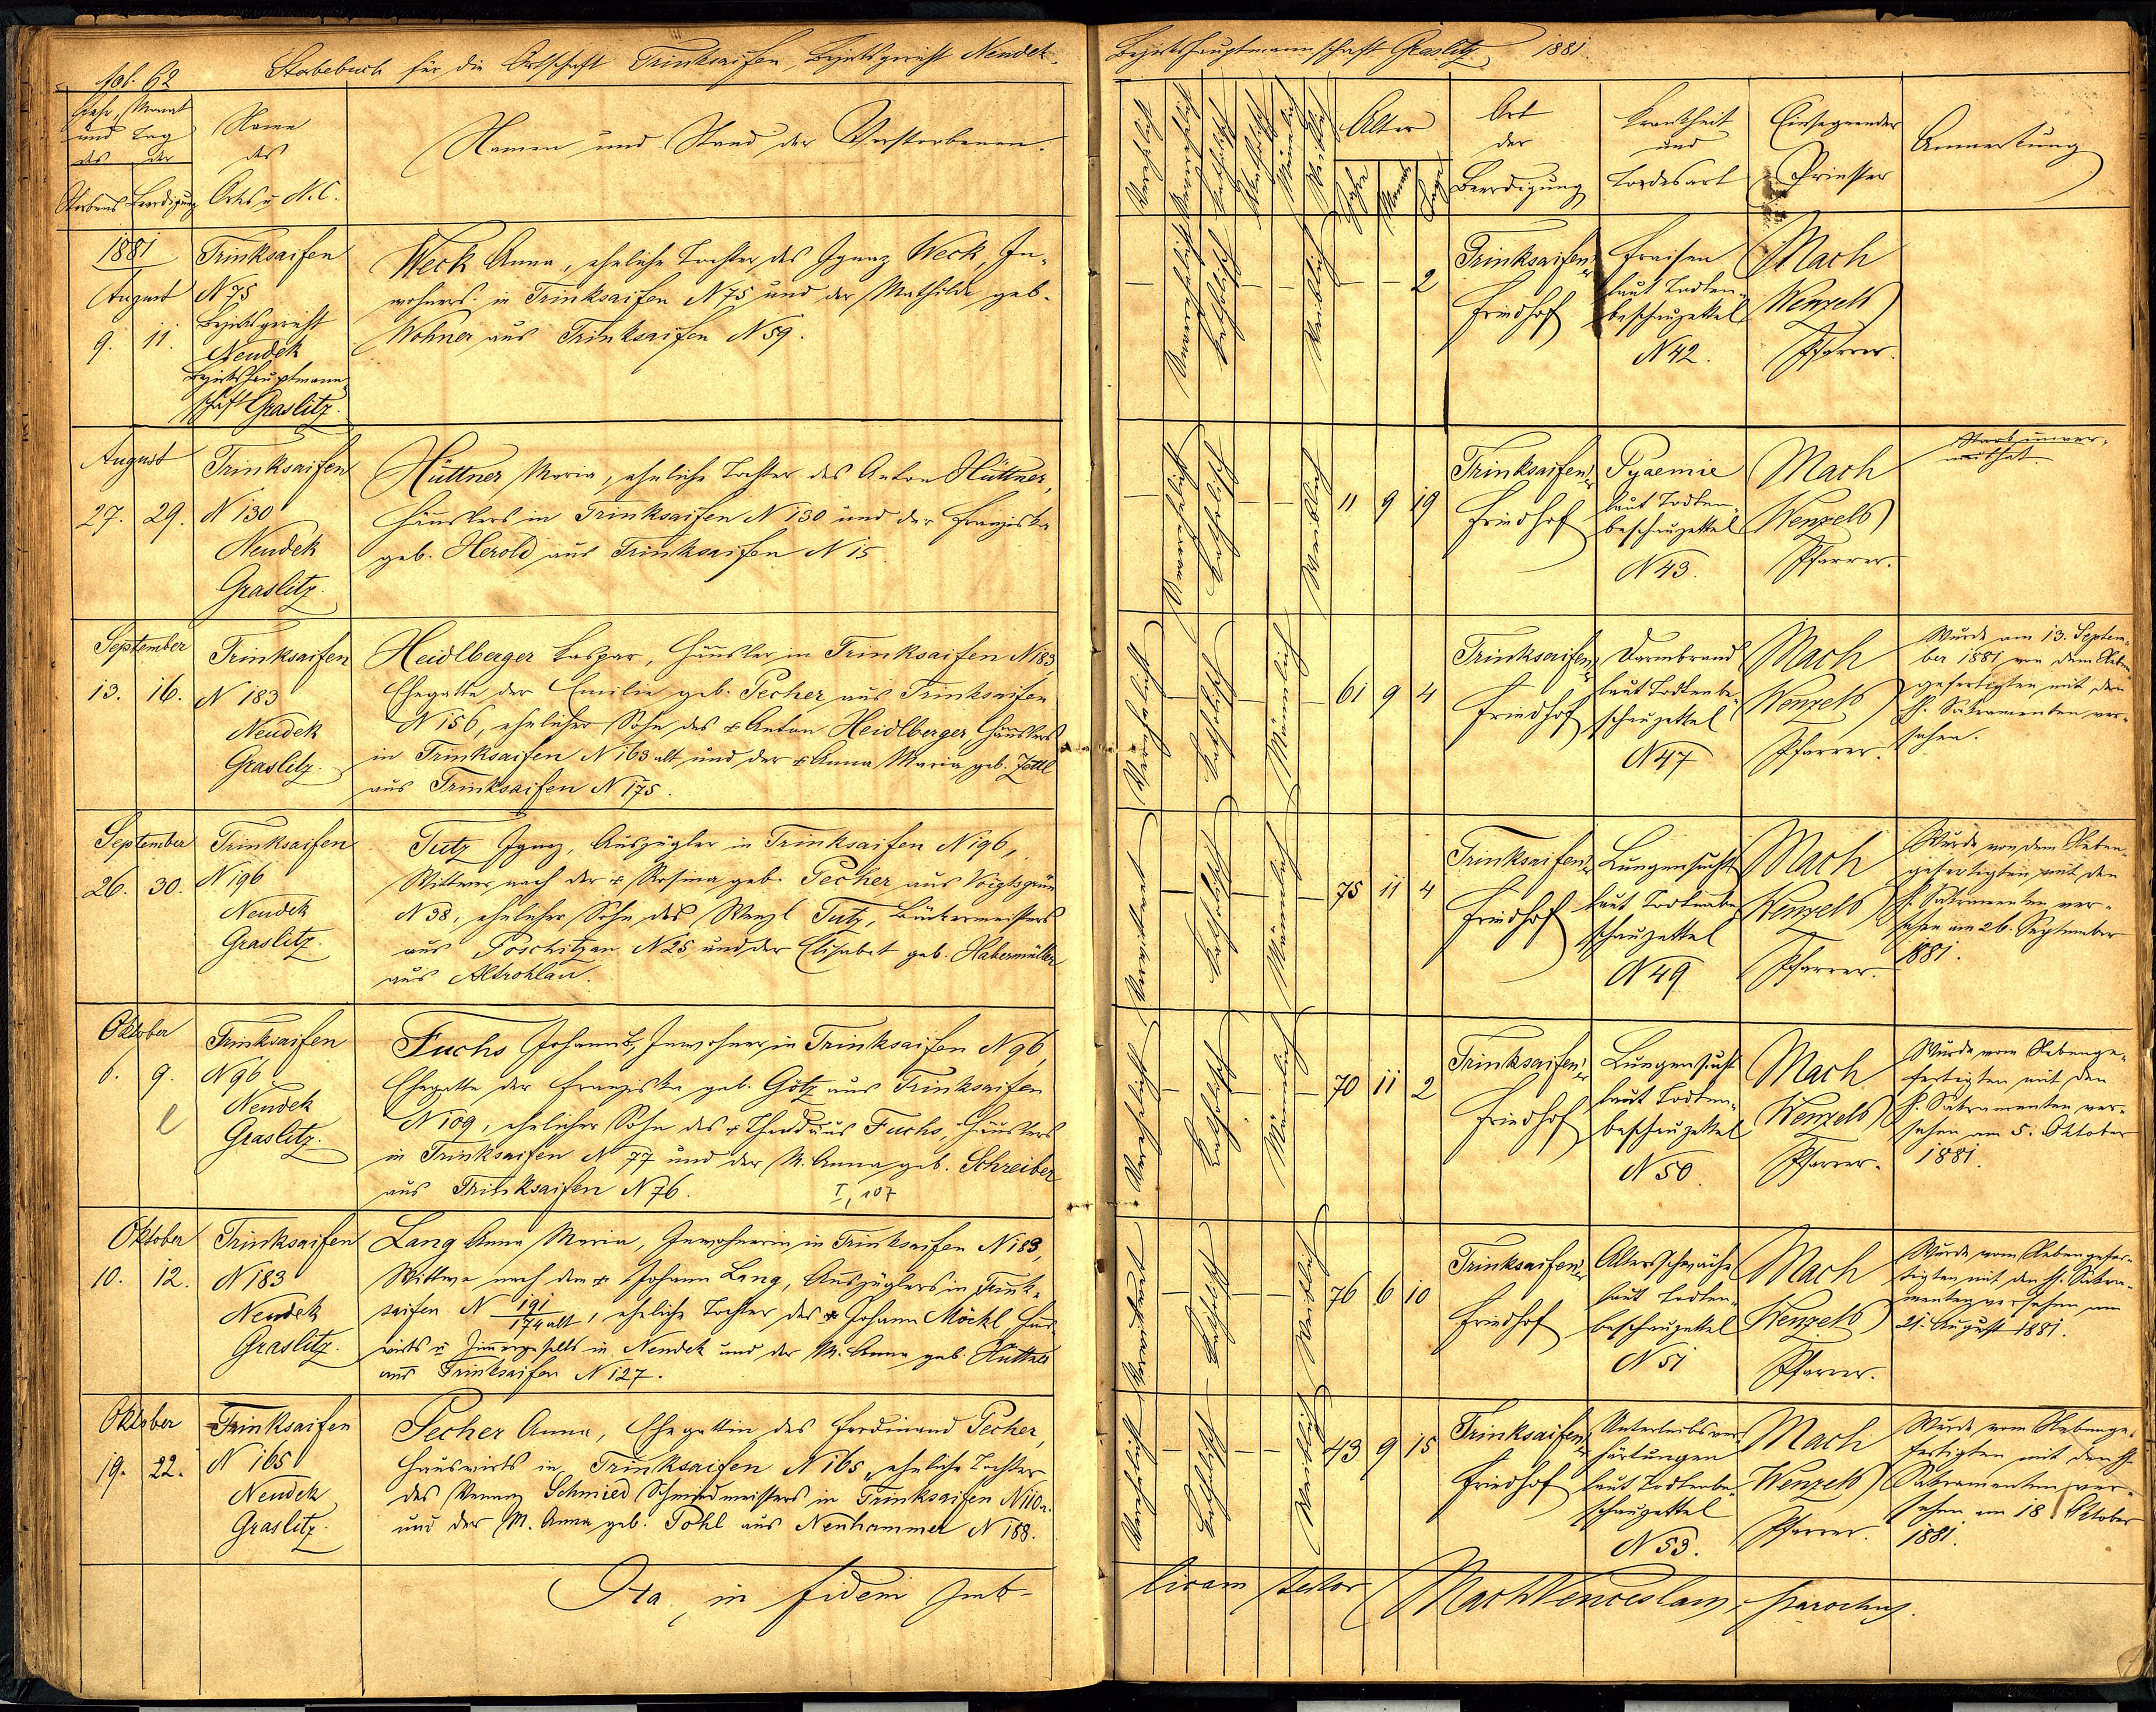 fol. 62
Sterbebuch für die Ortschaft Trinksaifen, Bezirksgericht Neudek.
Bezirkshauptmannschaft Graslitz. 1881.
Jahr, Monat
und Tag
des der
Sterbens Beerdigung
Name
des
Orts u. N. C.
Namen und Stand der Verstorbenen.
Katholisch
Männlich
Weiblich
Alter
Jahre
Monate
Tage
Art
der
Beerdigung
Krankheit
und
Todesart
Einsegnender
Priester
Anmerkung
1881
August
9. 11.
Trinksaifen
N 75
Bezirksgericht
Neudek
Bezirkshauptmann-
schaft Graslitz.
Weck Anna, eheliche Tochter des Ignaz Weck, In-
wohners in Trinksaifen N 75 und der Mathilde geb.
Wohner aus Trinksaifen N 59.
Unverehelicht
Katholisch
Weiblich
2
Trinksaifen
Friedhof
Fraisen
laut Todten-
beschauzettel
N 42.
Mach
Wenzel
Pfarrer.
August
27. 29.
Trinksaifen
N 130
Neudek
Graslitz.
Hüttner Maria, eheliche Tochter des Anton Hüttner,
Häuslers in Trinksaifen N 130 und der Franziska
geb. Herold aus Trinksaifen N 15.
Katholisch
Weiblich
11 9 19
Trinksaifen
Friedhof
Pyaemie
laut Todten-
beschauzettel
N 43.
Mach
Wenzel
Pfarrer.
September
13. 16.
Trinksaifen
N 183
Neudek
Graslitz.
Heidlberger Kaspar, Häusler in Trinksaifen N 183,
Ehegatte der Emilie geb. Pecher aus Trinksaifen
N 156, ehelicher Sohn des + Anton Heidlberger Häuslers
in Trinksaifen N 163 alt und der + Anna Maria geb. Zettl
aus Trinksaifen N 175.
Verehelicht
Katholisch
Männlich
61 9 4
Trinksaifen
Friedhof
Darmbrand
laut Todtenbe-
schauzettel
N 47
Mach
Wenzel
Pfarrer.
Wurde am 13. Septem-
ber 1881 von dem Neben-
gefertigten mit den
hl. Sakramenten ver-
sehen.
September
26. 30.
Trinksaifen
N 196
Neudek
Graslitz.
Tutz Ignaz, Auszügler in Trinksaifen N 196,
Wittwer nach der + Rosina geb. Pecher aus Voigtsgrün
N 38, ehelicher Sohn des Wenzl Tutz, Bäckermeisters
aus Poschitzau N 25 und der Elisabet geb. Habermüller
aus Altrohlau.
Verwittwet
Katholisch
Männlich
75 11 4
Trinksaifen
Friedhof
Lungensucht
laut Todtenbe-
schauzettel
N 49
Mach
Wenzel
Pfarrer.
Wurde von dem Neben-
gefertigten mit den
hl. Sakramenten ver-
sehen am 26. September
1881.
Oktober
6. 9.
Trinksaifen
N 96
Neudek
Graslitz.
Fuchs Johann, Inwohner in Trinksaifen N 96,
Ehegatte der Franziska geb. Götz aus Trinksaifen
N 109, ehelicher Sohn des + Thadäus Fuchs, Häuslers
in Trinksaifen N 77 und der M. Anna geb. Schreiber
aus Trinksaifen N 76. I, 107
Verehelicht
Katholisch
Männlich
70 11 2
Trinksaifen
Friedhof
Lungensucht
laut Todten-
beschauzettel
N 50
Mach
Wenzel
Pfarrer.
Wurde vom Nebenge-
fertigten mit den
hl. Sakramenten ver-
sehen am 5. Oktober
1881.
Oktober
10. 12.
Trinksaifen
N 183
Neudek
Graslitz.
Lang Anna Maria, Inwohnerin in Trinksaifen N 183,
Wittwe nach dem + Johann Lang, Auszüglers in Trink-
saifen N 191/174 alt, eheliche Tochter des + Johann Möckl Haus-
wirts u. Zimmergesells in Neudek und der M. Anna geb. Hüttel
aus Trinksaifen N 127.
Verwittwet
Katholisch
Weiblich
76 6 10
Trinksaifen
Friedhof
Altersschwäche
laut Todten-
beschauzettel
N 51
Mach
Wenzel
Pfarrer.
Wurde vom Nebengefer-
tigten mit den hl. Sakra-
menten versehen am
21. August 1881.
Oktober
19. 22.
Trinksaifen
N 165
Neudek
Graslitz.
Pecher Anna, Ehegattin des Ferdinand Pecher,
Hauswirts in Trinksaifen N 165, eheliche Tochter
des Schmied Schmiedmeisters in Trinksaifen N 110
und der M. Anna geb. Pohl aus Neuhammer N 188.
Verehelicht
Katholisch
Weiblich
43 9 15
Trinksaifen
Friedhof
Unterleibsver-
härtungen
laut Todtenbe-
schauzettel
N 53.
Mach
Wenzel
Pfarrer.
Wurde vom Nebenge-
fertigten mit den hl.
Sakramenten ver-
sehen am 18. Oktober
1881.
Ita in fidem
testor Mach Wenceslaus, parochus.